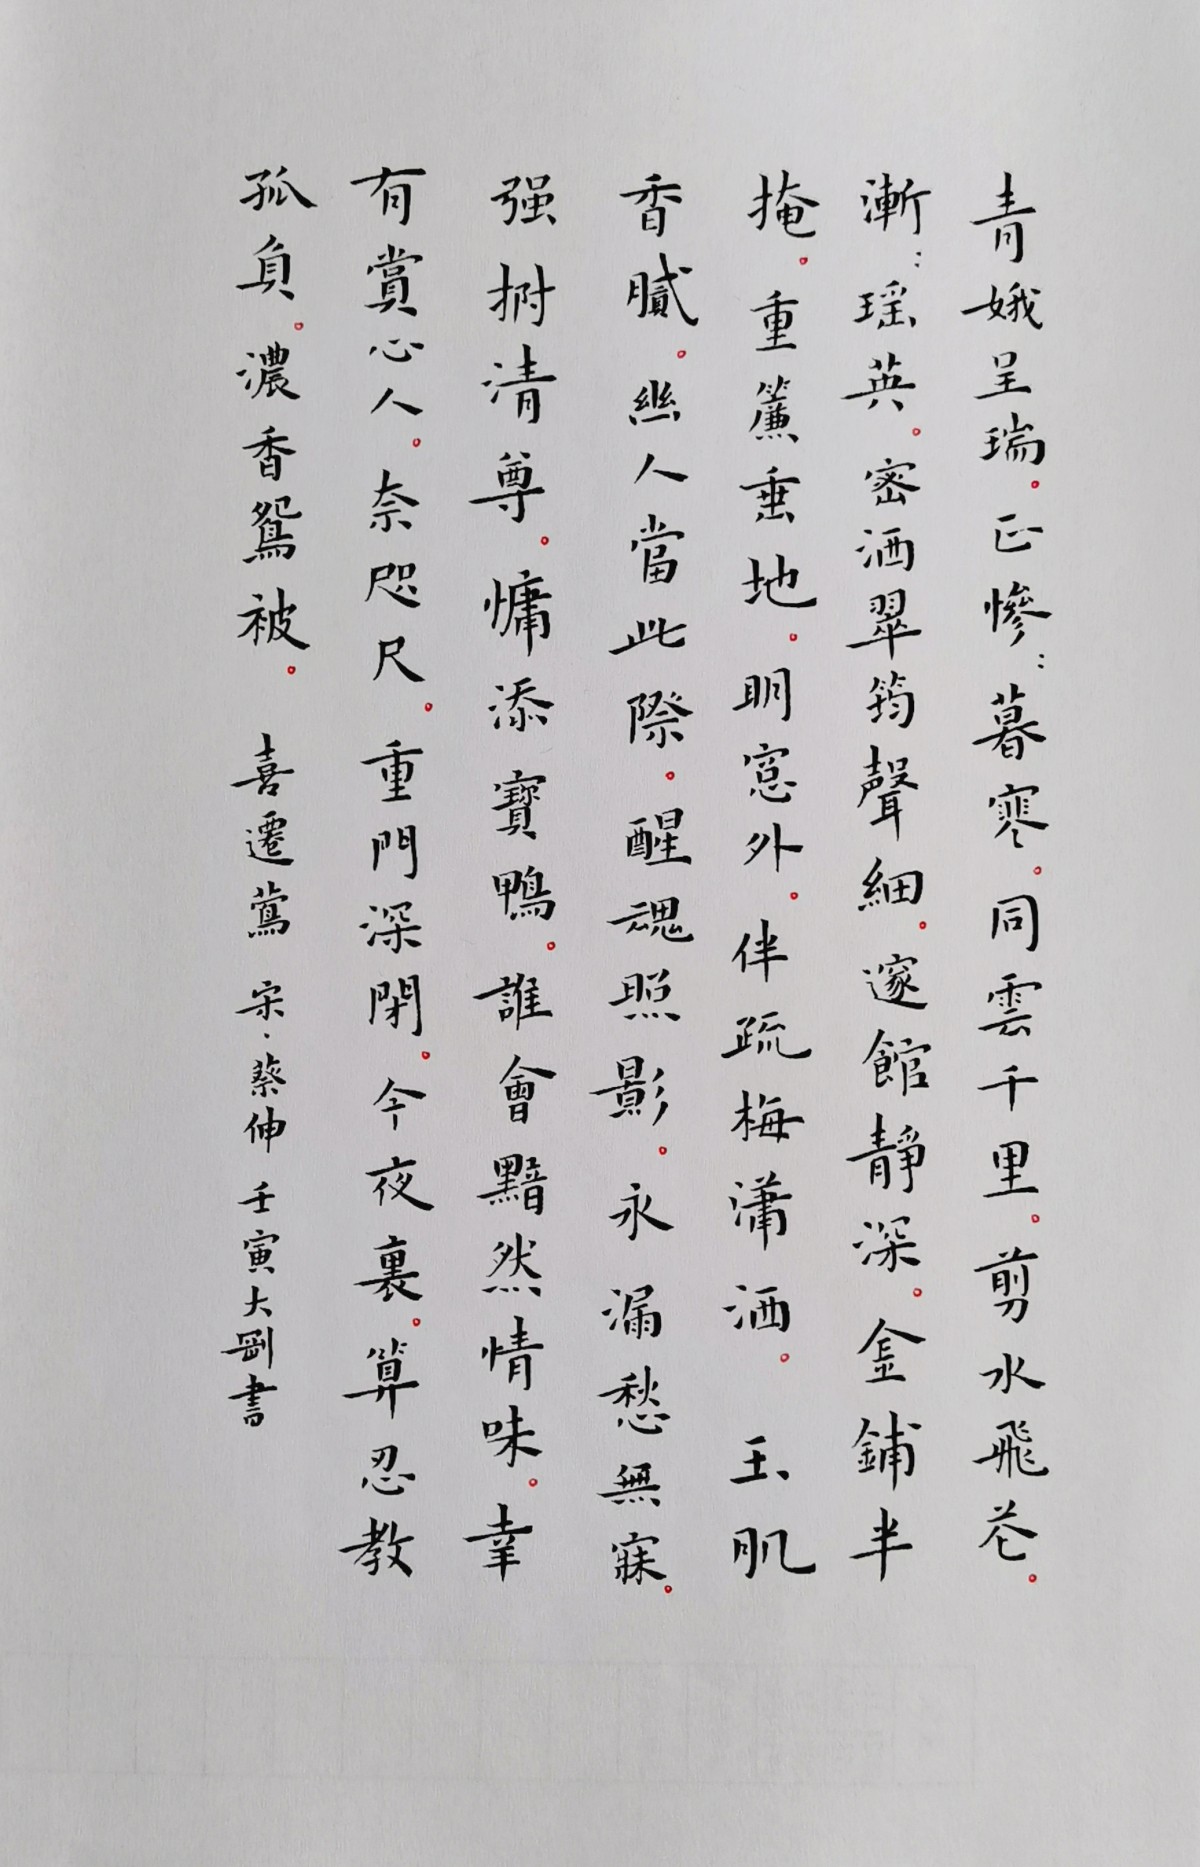 青娥呈瑞。正慘:暮寒。同雲千里。剪水飛花。
漸:瑶英。密洒翠筠聲細。邃館靜深。金鋪半
掩。重簾垂地。明窓外。伴疏梅潇洒。 玉肌
香膩。幽人當此際。醒魂照影。永漏愁無寐。
强拊清尊。慵添寶鴨。誰會黯然情味。幸
有賞心人。奈咫尺。重門深閉。今夜裏。算忍教
孤負。濃香鴛被。 喜遷鶯 宋·蔡伸 壬寅大剛書